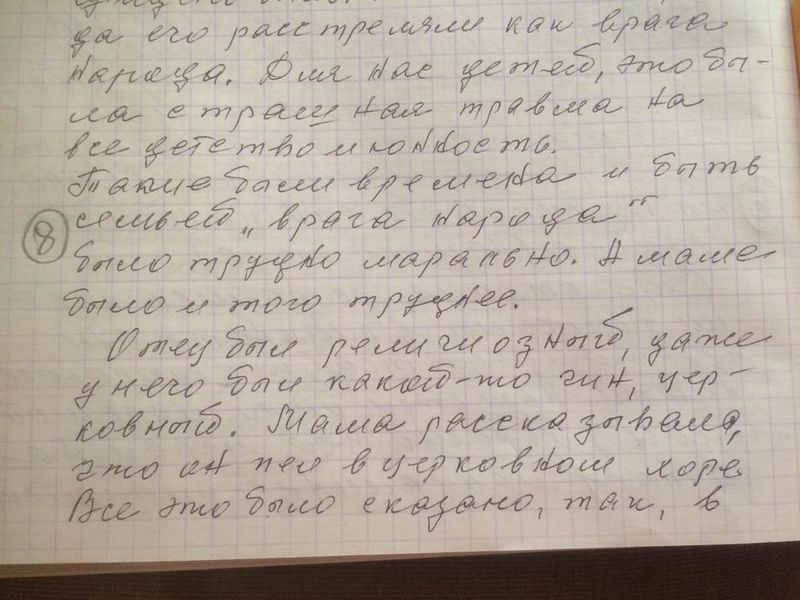 да его расстреляли как врага
народа. Для нас детей, это бы-
ла страшная травма на
все детство и юность.
Такие были времена и быть
семьей „врага народа"
8
было трудно марально. А маме
было и того труднее.
Отец был религиозный, даже
у него был какой-то чин, цер-
ковный. Мама рассказывала,
что он пел в церковном хоре
Все это было сказано, так, в